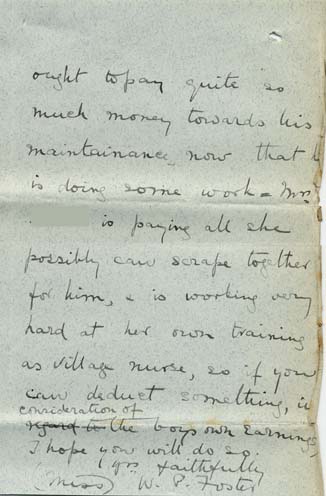 ought to pay quite so
much money towards his
maintainance, now that h
is doing some work = Mrs
is paying all she
possibly can scrape together
for him, & is working very
hard at her own training
as village nurse, so if you
can deduct something, in
consideration of
regard to the boys own earnings,
I hope you will do so.
Yrs faithfully
(Miss) W. P. Foster